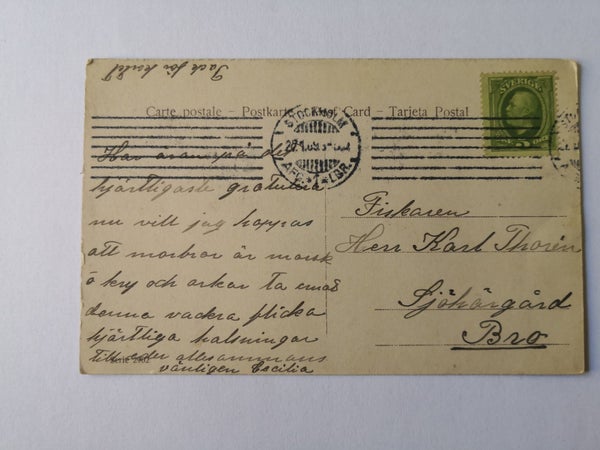 Tack för kortet
SVERIGE
5
Carte postale – Postkarte – Card – Tarjeta Postal
STOCKHOLM
AFG. 1 LBR.
Har äran på det
hjärtligaste gratulera
nu vill jag hoppas
att morbror är morsk
å kry och orkar ta emot
denna vackra flicka
hjärtliga halsningar
till eder allesammans
vänligen Cecilia
Fiskaren
Herr Karl Thorén
Sjöhärgård
Bro